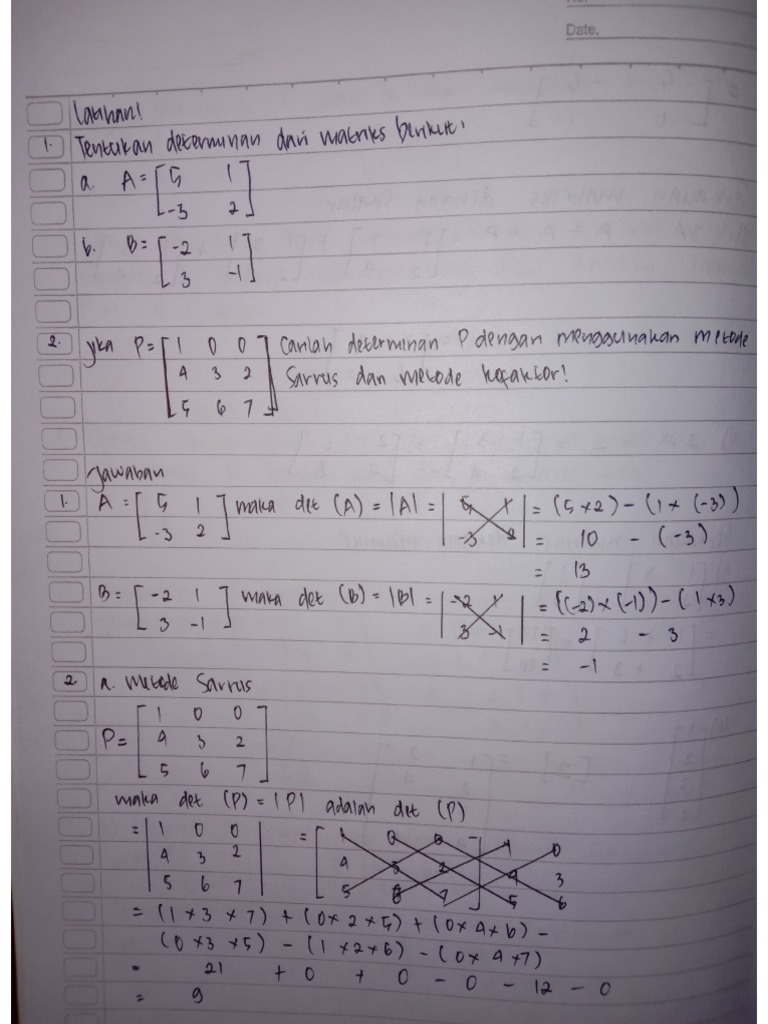 Date.
Latihan!
1. Tentukan determinan dari matriks berikut:
a. A = [5 1
-3 2]
b. B = [-2 1
3 -1]
2. Jika P = [1 0 0 Carilah determinan P dengan menggunakan metode
4 3 2 Sarrus dan metode kofaktor!
5 6 7]
Jawaban
1. A = [5 1 ] maka det (A) = |A| = |5 1| = (5 × 2) - (1 × (-3))
-3 2 -3 2 = 10 - (-3)
= 13
B = [-2 1 ] maka det (B) = |B| = |-2 1| = ((-2) × (-1)) - (1 × 3)
3 -1 3 -1 = 2 - 3
= -1
2. a. Metode Sarrus
1 0 0
P = 4 3 2
5 6 7
maka det (P) = |P| adalah det (P)
= |1 0 0| = [1 0 0] 1 0
4 3 2 4 3 2 4 3
5 6 7 5 6 7 5 6
= (1 × 3 × 7) + (0 × 2 × 5) + (0 × 4 × 6) -
(0 × 3 × 5) - (1 × 2 × 6) - (0 × 4 × 7)
= 21 + 0 + 0 - 0 - 12 - 0
= 9